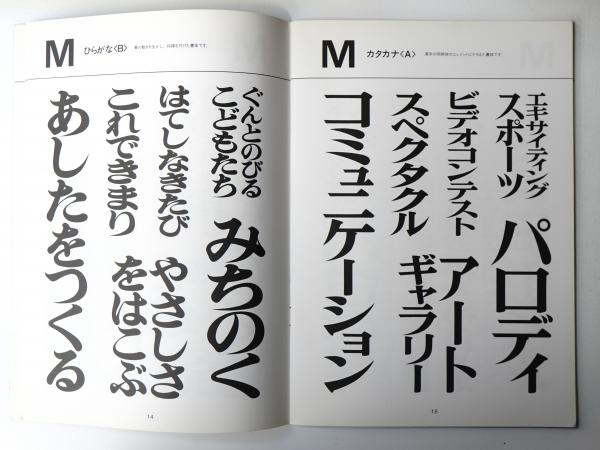 M ひらがな〈B〉
ぐんとのびる
こどもたち
みちのく
はてしなきたび
これできまり
やさしさ
をはこぶ
あしたをつくる
14
M カタカナ〈A〉
エキサイティング
スポーツ
パロディ
ビデオコンテスト
スペクタクル
アート
ギャラリー
コミュニケーション
15